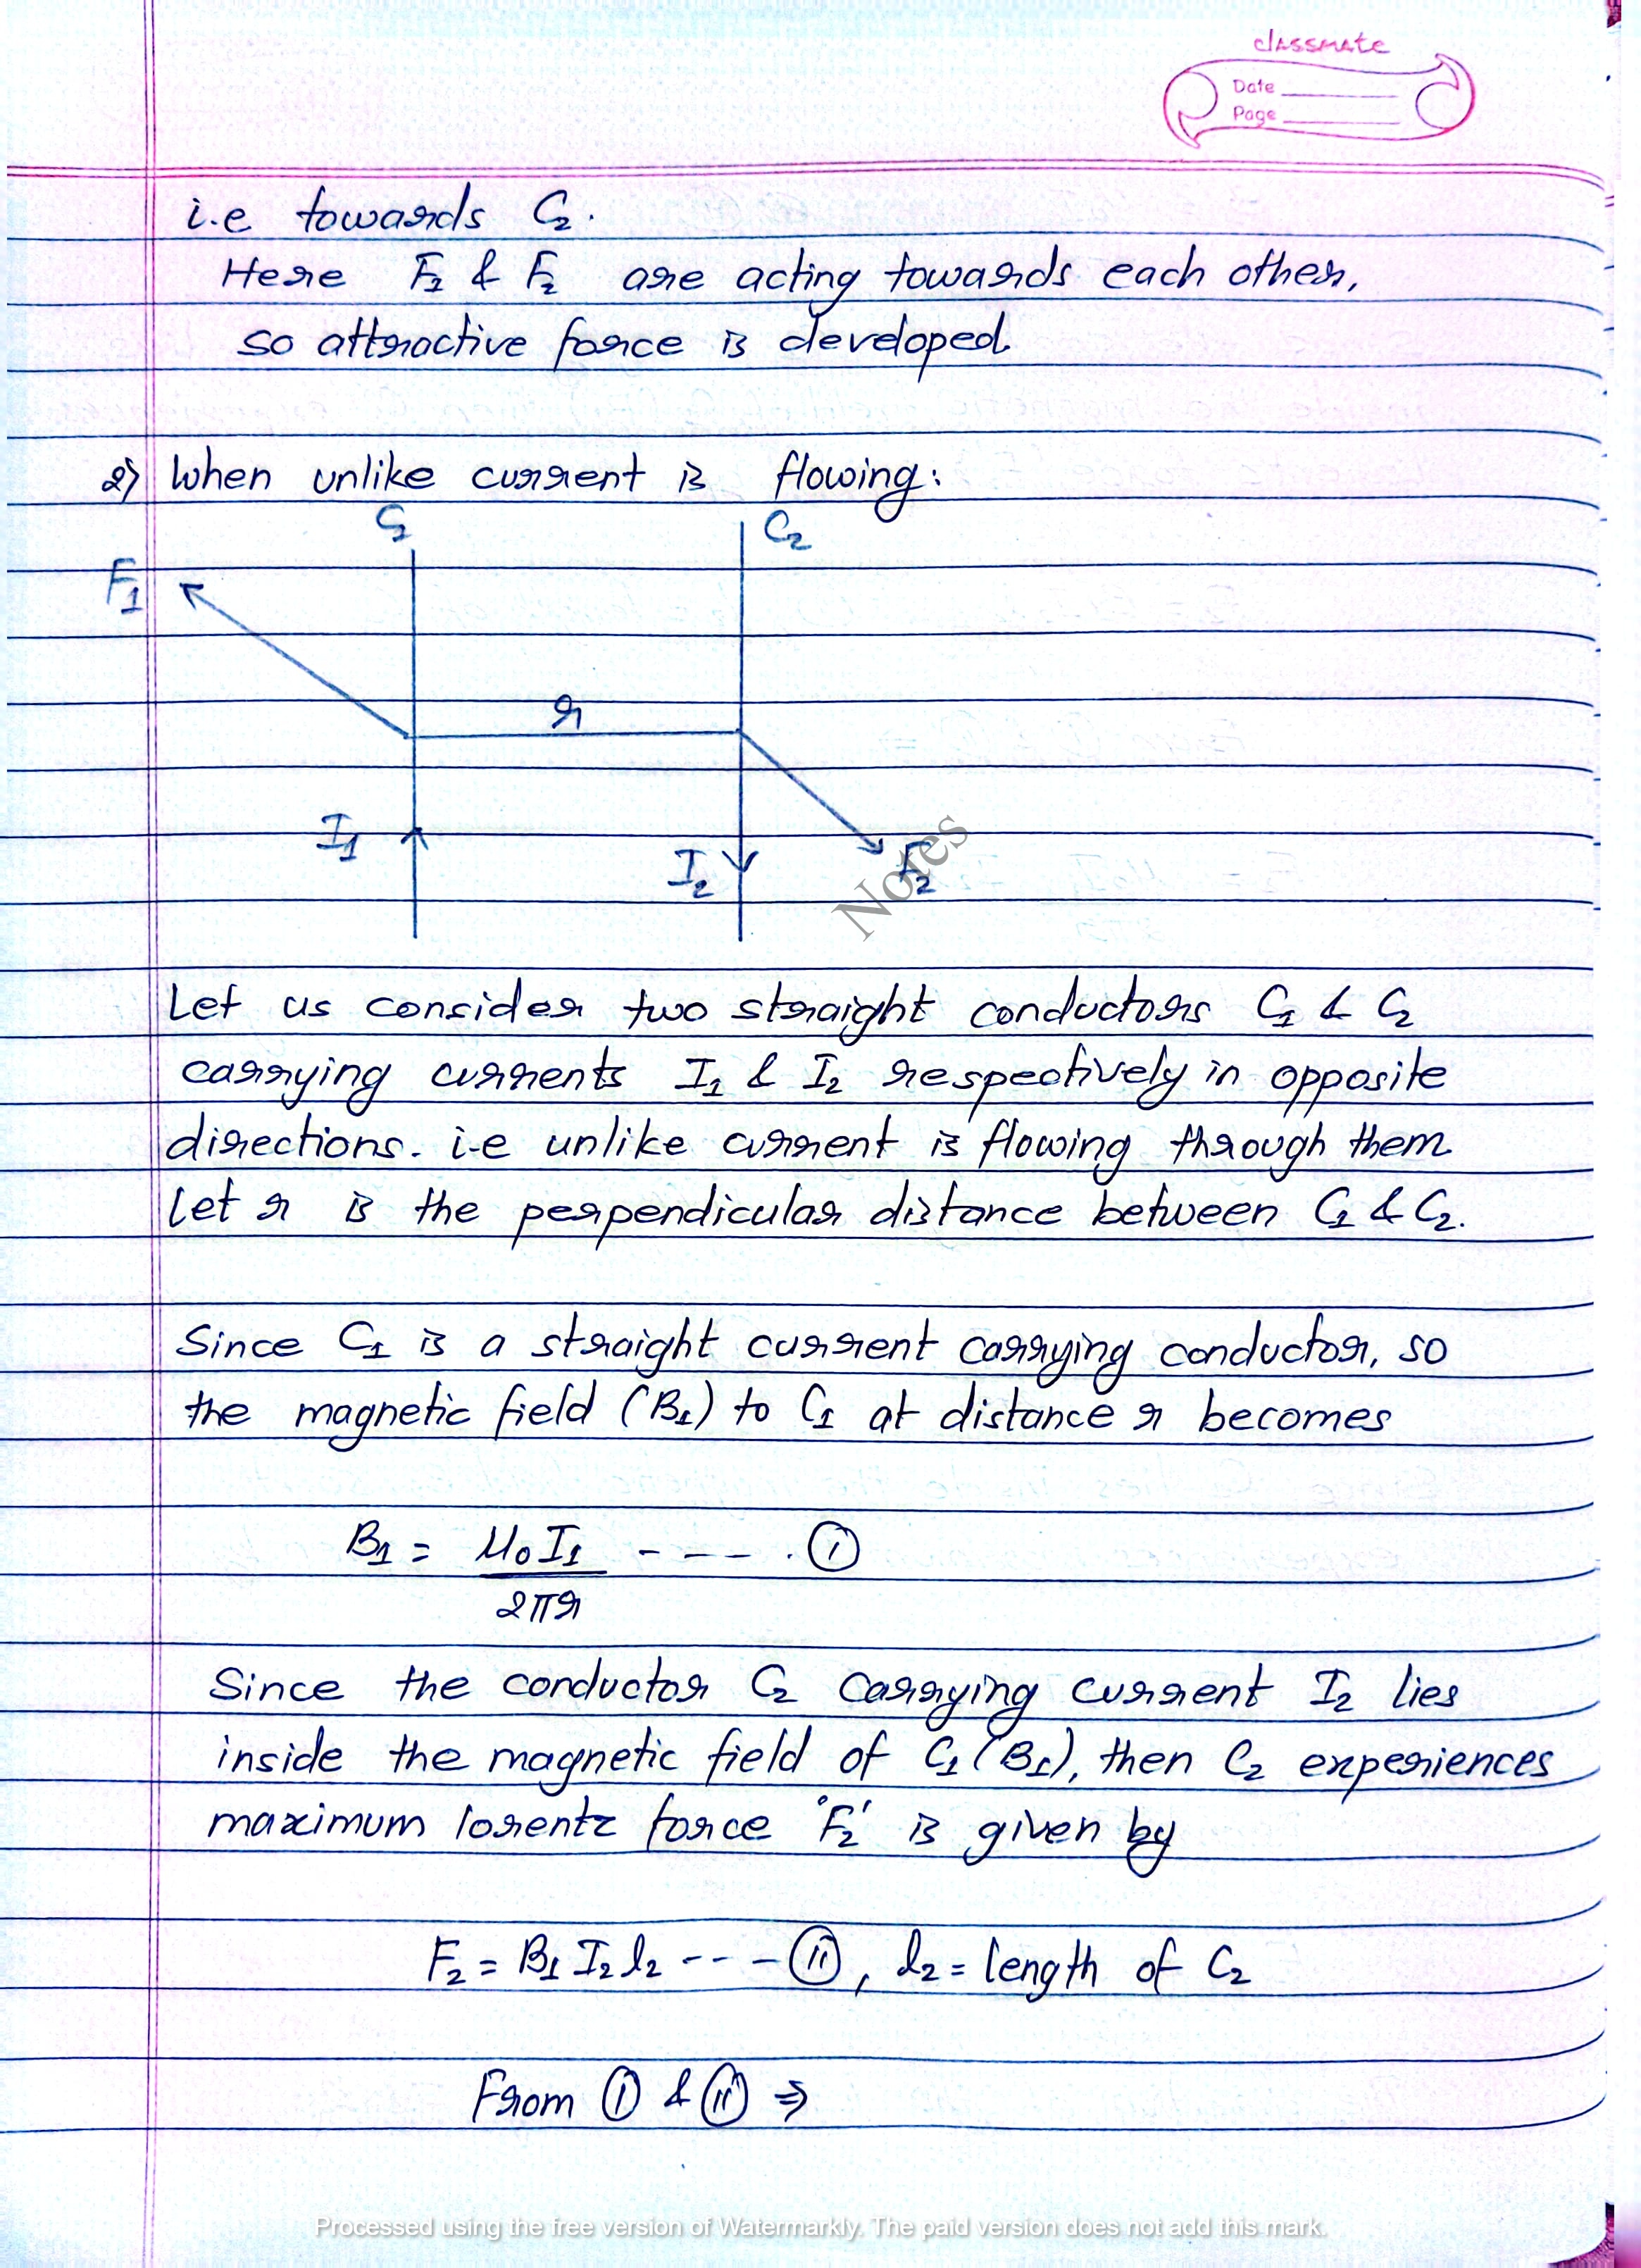 classmate
Date
Page
i.e towards C₂.
Here F₁ & F₂ are acting towards each other,
so attractive force is developed.
2) When unlike current is flowing:
C₁ C₂
F₁
r
I₁
I₂ F₂
Notes
Let us consider two straight conductors C₁ & C₂
carrying currents I₁ & I₂ respectively in opposite
directions. i.e unlike current is flowing through them
Let r is the perpendicular distance between C₁ & C₂.
Since C₁ is a straight current carrying conductor, so
the magnetic field (B₁) to C₁ at distance r becomes
B₁ = μ₀I₁ - - - - . (i)
2πr
Since the conductor C₂ carrying current I₂ lies
inside the magnetic field of C₁ (B₁), then C₂ experiences
maximum lorentz force 'F₂' is given by
F₂ = B₁ I₂ l₂ - - - (ii), l₂ = length of C₂
From (i) & (ii) ⇒
Processed using the free version of Watermarkly. The paid version does not add this mark.